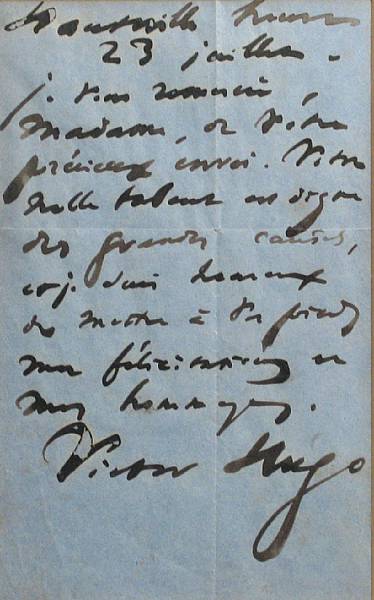 Hauteville house
23 juillet.
je vous remercie,
Madame, de votre
précieux envoi. Votre
noble talent est digne
des grandes causes,
et je suis heureux
de mettre à vos pieds
mes félicitations et
mes hommages.
Victor Hugo